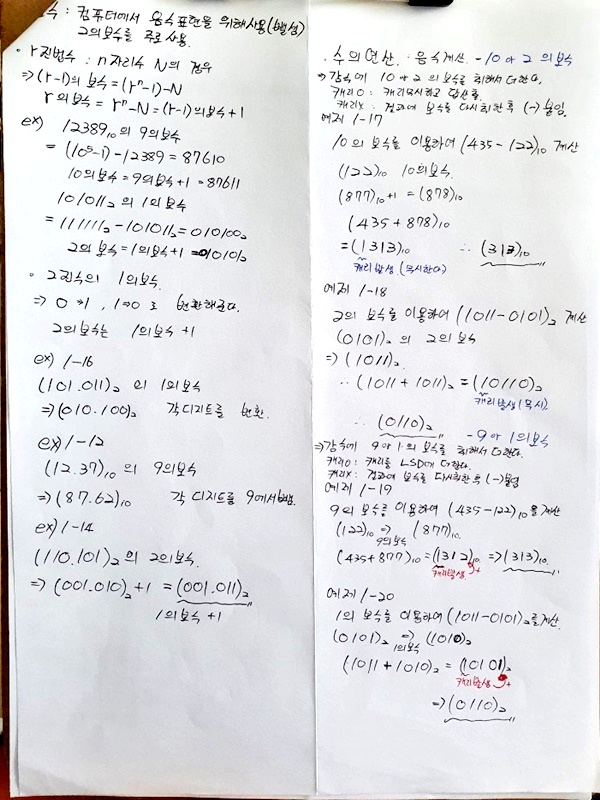 수 : 컴퓨터에서 음수표현을 위해사용(뺄셈)
2의보수를 주로 사용.
· r진법수 : n자리수 N의 경우
⇒ (r-1)의 보수 = (rⁿ-1)-N
r의 보수 = rⁿ-N = (r-1)의보수+1
ex) 12389₁₀의 9의보수
= (10⁵-1)-12389 = 87610
10의보수 = 9의보수+1 = 87611
101011₂의 1의보수
= 111111₂-101011₂ = 010100₂
2의 보수 = 1의보수+1 = 010101₂
· 2진수의 1의보수.
⇒ 0→1, 1→0로 변환해준다.
2의보수는 1의보수 +1
ex) 1-16
(101.011)₂ 의 1의보수
⇒ (010.100)₂ 각디지트를 변환.
ex) 1-12
(12.37)₁₀ 의 9의보수
⇒ (87.62)₁₀ 각 디지트를 9에서뺌.
ex) 1-14
(110.101)₂의 2의보수.
⇒ (001.010)₂+1 = (001.011)₂
1의보수 +1
· 수의연산 : 음수계산. -10 or 2 의보수
⇒ 감수에 10 or 2 의 보수를 취해서 더한다.
캐리O : 캐리무시하고 답산출.
캐리X : 결과에 보수를 다시취한후 (-)붙임.
예제 1-17
10의 보수를 이용하여 (435-122)₁₀ 계산
(122)₁₀ 10의보수.
(877)₁₀+1 = (878)₁₀
(435+878)₁₀
= (1313)₁₀ ∴ (313)₁₀
캐리발생 (무시한다)
예제 1-18
2의 보수를 이용하여 (1011-0101)₂ 계산
(0101)₂ 의 2의보수
⇒ (1011)₂
∴ (1011+1011)₂ = (10110)₂
캐리발생(무시).
∴ (0110)₂
-9 or 1의보수
⇒ 감수에 9 or 1의 보수를 취해서 더한다.
캐리O : 캐리를 LSD에 더한다.
캐리X : 결과에 보수를 다시취한후 (-)붙임
예제 1-19
9의 보수를 이용하여 (435-122)₁₀을 계산
(122)₁₀ ⇒ (877)₁₀.
9의보수
(435+877)₁₀ = (1312)₁₀ ⇒ (313)₁₀.
캐리발생. +
예제 1-20
1의 보수를 이용하여 (1011-0101)₂를 계산.
(0101)₂ ⇒ (1010)₂
1의보수
(1011+1010)₂ = (10101)₂
캐리발생 +
⇒ (0110)₂